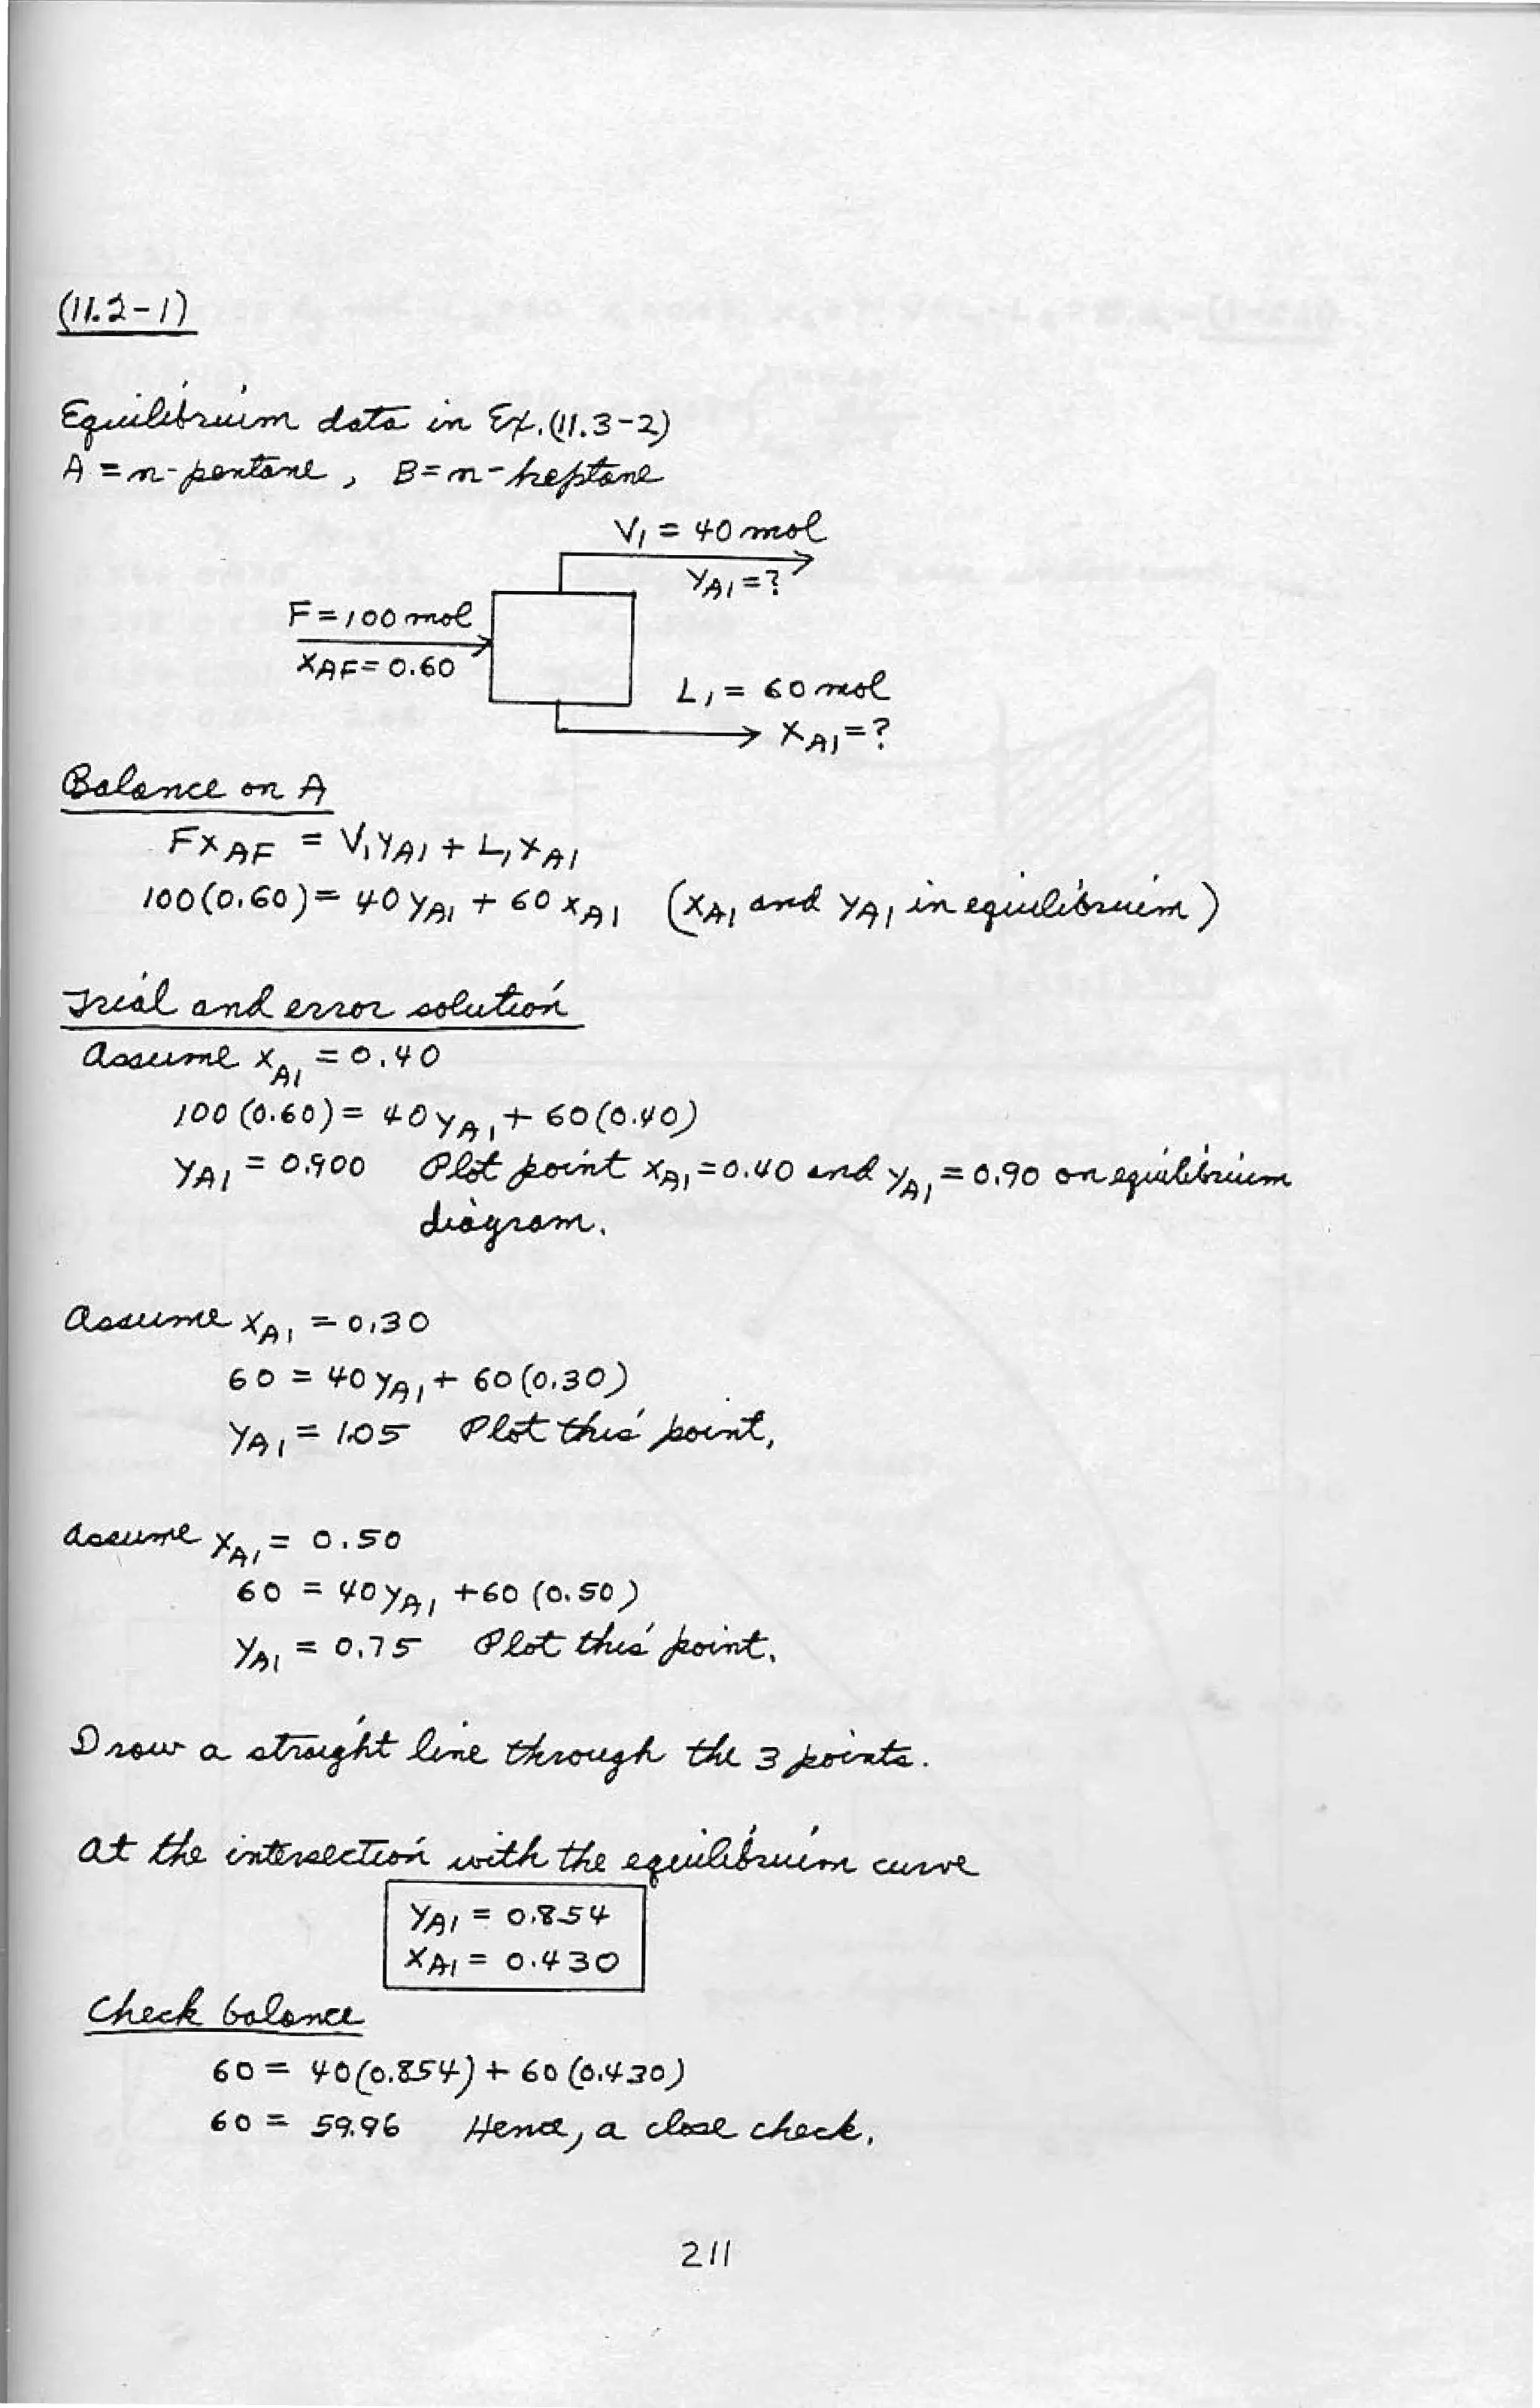 (11.2-1)
Equilibrium data in Ex. (11.3-2)
A = n-pentane, B = n-heptane
V₁ = 40 mol
yA1 = ?
F = 100 mol
xAF = 0.60
L₁ = 60 mol
xA1 = ?
Balance on A
FxAF = V₁yA1 + L₁xA1
100(0.60) = 40yA1 + 60xA1 (xA1 and yA1 in equilibrium)
Trial and error solution
Assume xA1 = 0.40
100(0.60) = 40yA1 + 60(0.40)
yA1 = 0.900 Plot point xA1 = 0.40 and yA1 = 0.90 on equilibrium
diagram.
Assume xA1 = 0.30
60 = 40yA1 + 60(0.30)
yA1 = 1.05 Plot this point,
Assume xA1 = 0.50
60 = 40yA1 + 60(0.50)
yA1 = 0.75 Plot this point.
Draw a straight line through the 3 points.
At the intersection with the equilibrium curve
yA1 = 0.854
xA1 = 0.430
Check balance
60 = 40(0.854) + 60(0.430)
60 = 59.96 Hence, a close check.
211